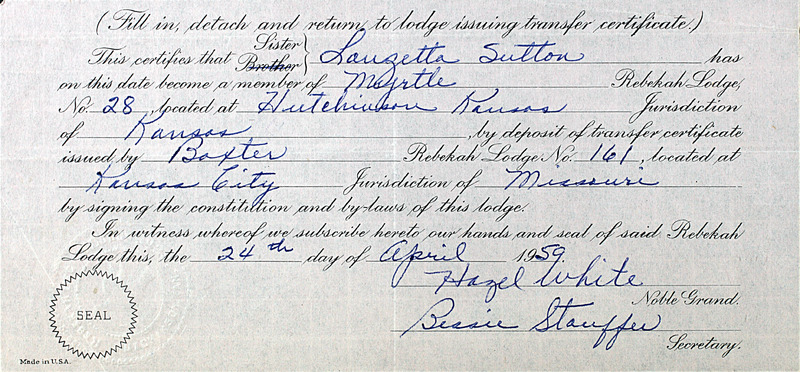 (Fill in, detach and return to lodge issuing transfer certificate.)
This certifies that Sister Brother} Lauzetta Sutton has
on this date become a member of Myrtle Rebekah Lodge,
No. 28, located at Hutchinson Kansas Jurisdiction
of Kansas, by deposit of transfer certificate
issued by Baxter Rebekah Lodge No. 161, located at
Kansas City Jurisdiction of Missouri
by signing the constitution and by-laws of this lodge.
In witness whereof we subscribe hereto our hands and seal of said Rebekah
Lodge this, the 24th day of April 1959.
Hazel White
Noble Grand.
Bessie Stauffer
Secretary.
SEAL
Made in U.S.A.